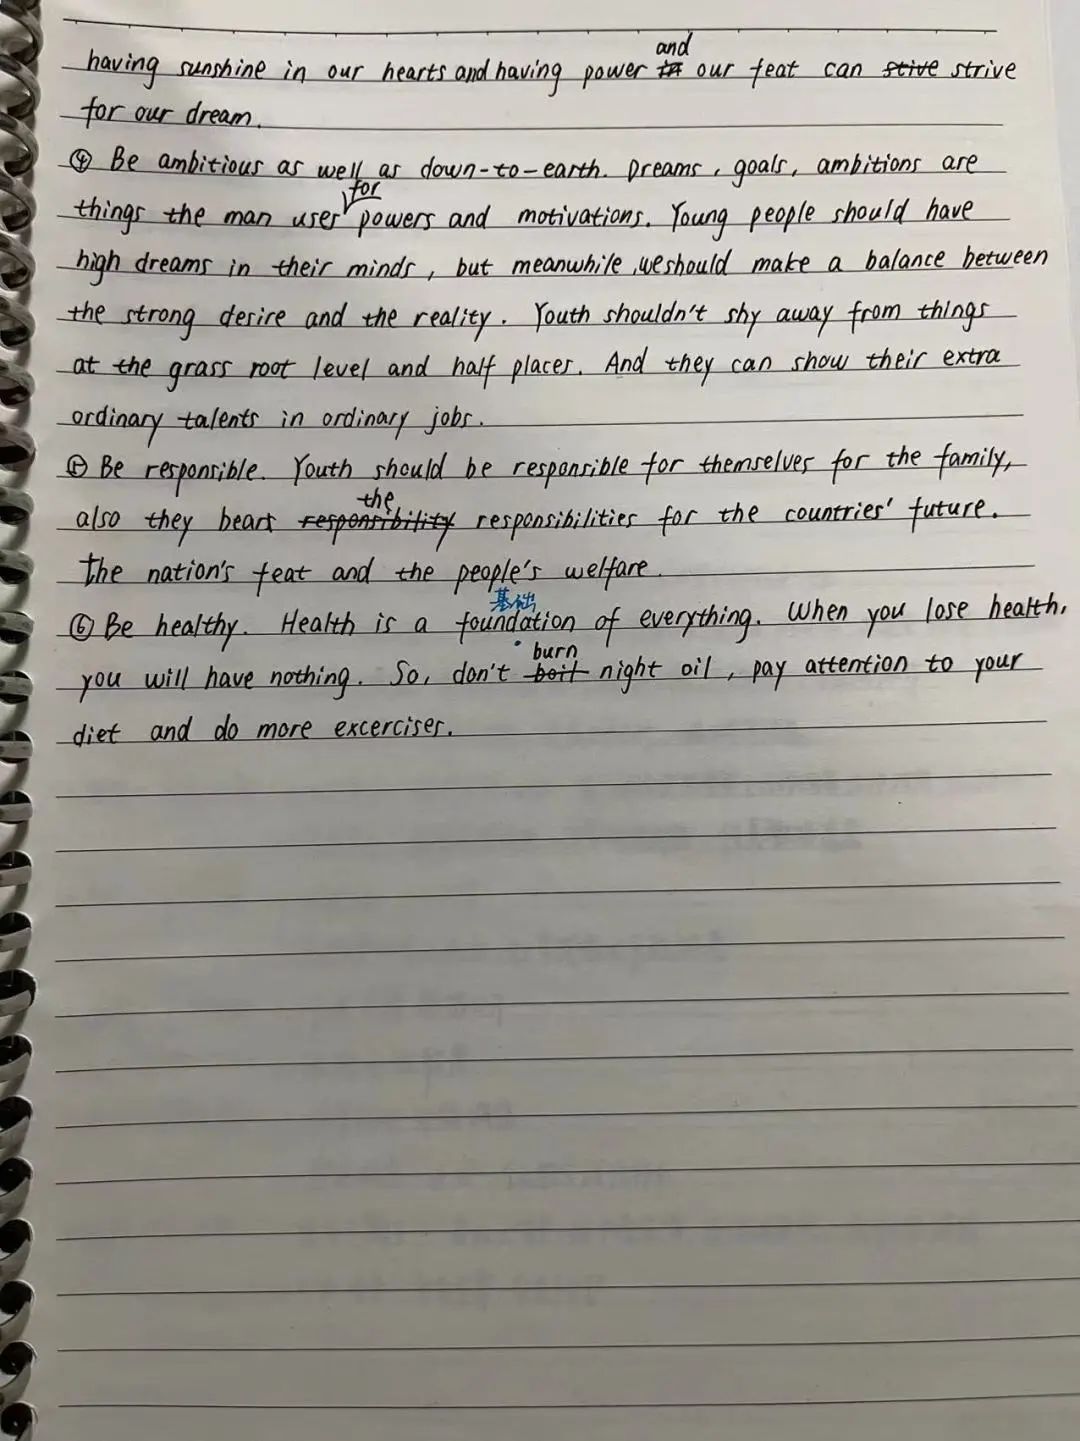 having sunshine in our hearts and having power and our feat can strive
for our dream.
④ Be ambitious as well as down-to-earth. Dreams, goals, ambitions are
things the man uses for powers and motivations. Young people should have
high dreams in their minds, but meanwhile, we should make a balance between
the strong desire and the reality. Youth shouldn't shy away from things
at the grass root level and half places. And they can show their extra
ordinary talents in ordinary jobs.
⑤ Be responsible. Youth should be responsible for themselves for the family,
also they bears the responsibilities for the countries' future.
the nation's feat and the people's welfare.
基础
⑥ Be healthy. Health is a foundation of everything. When you lose health,
you will have nothing. So, don't burn night oil, pay attention to your
diet and do more excercises.